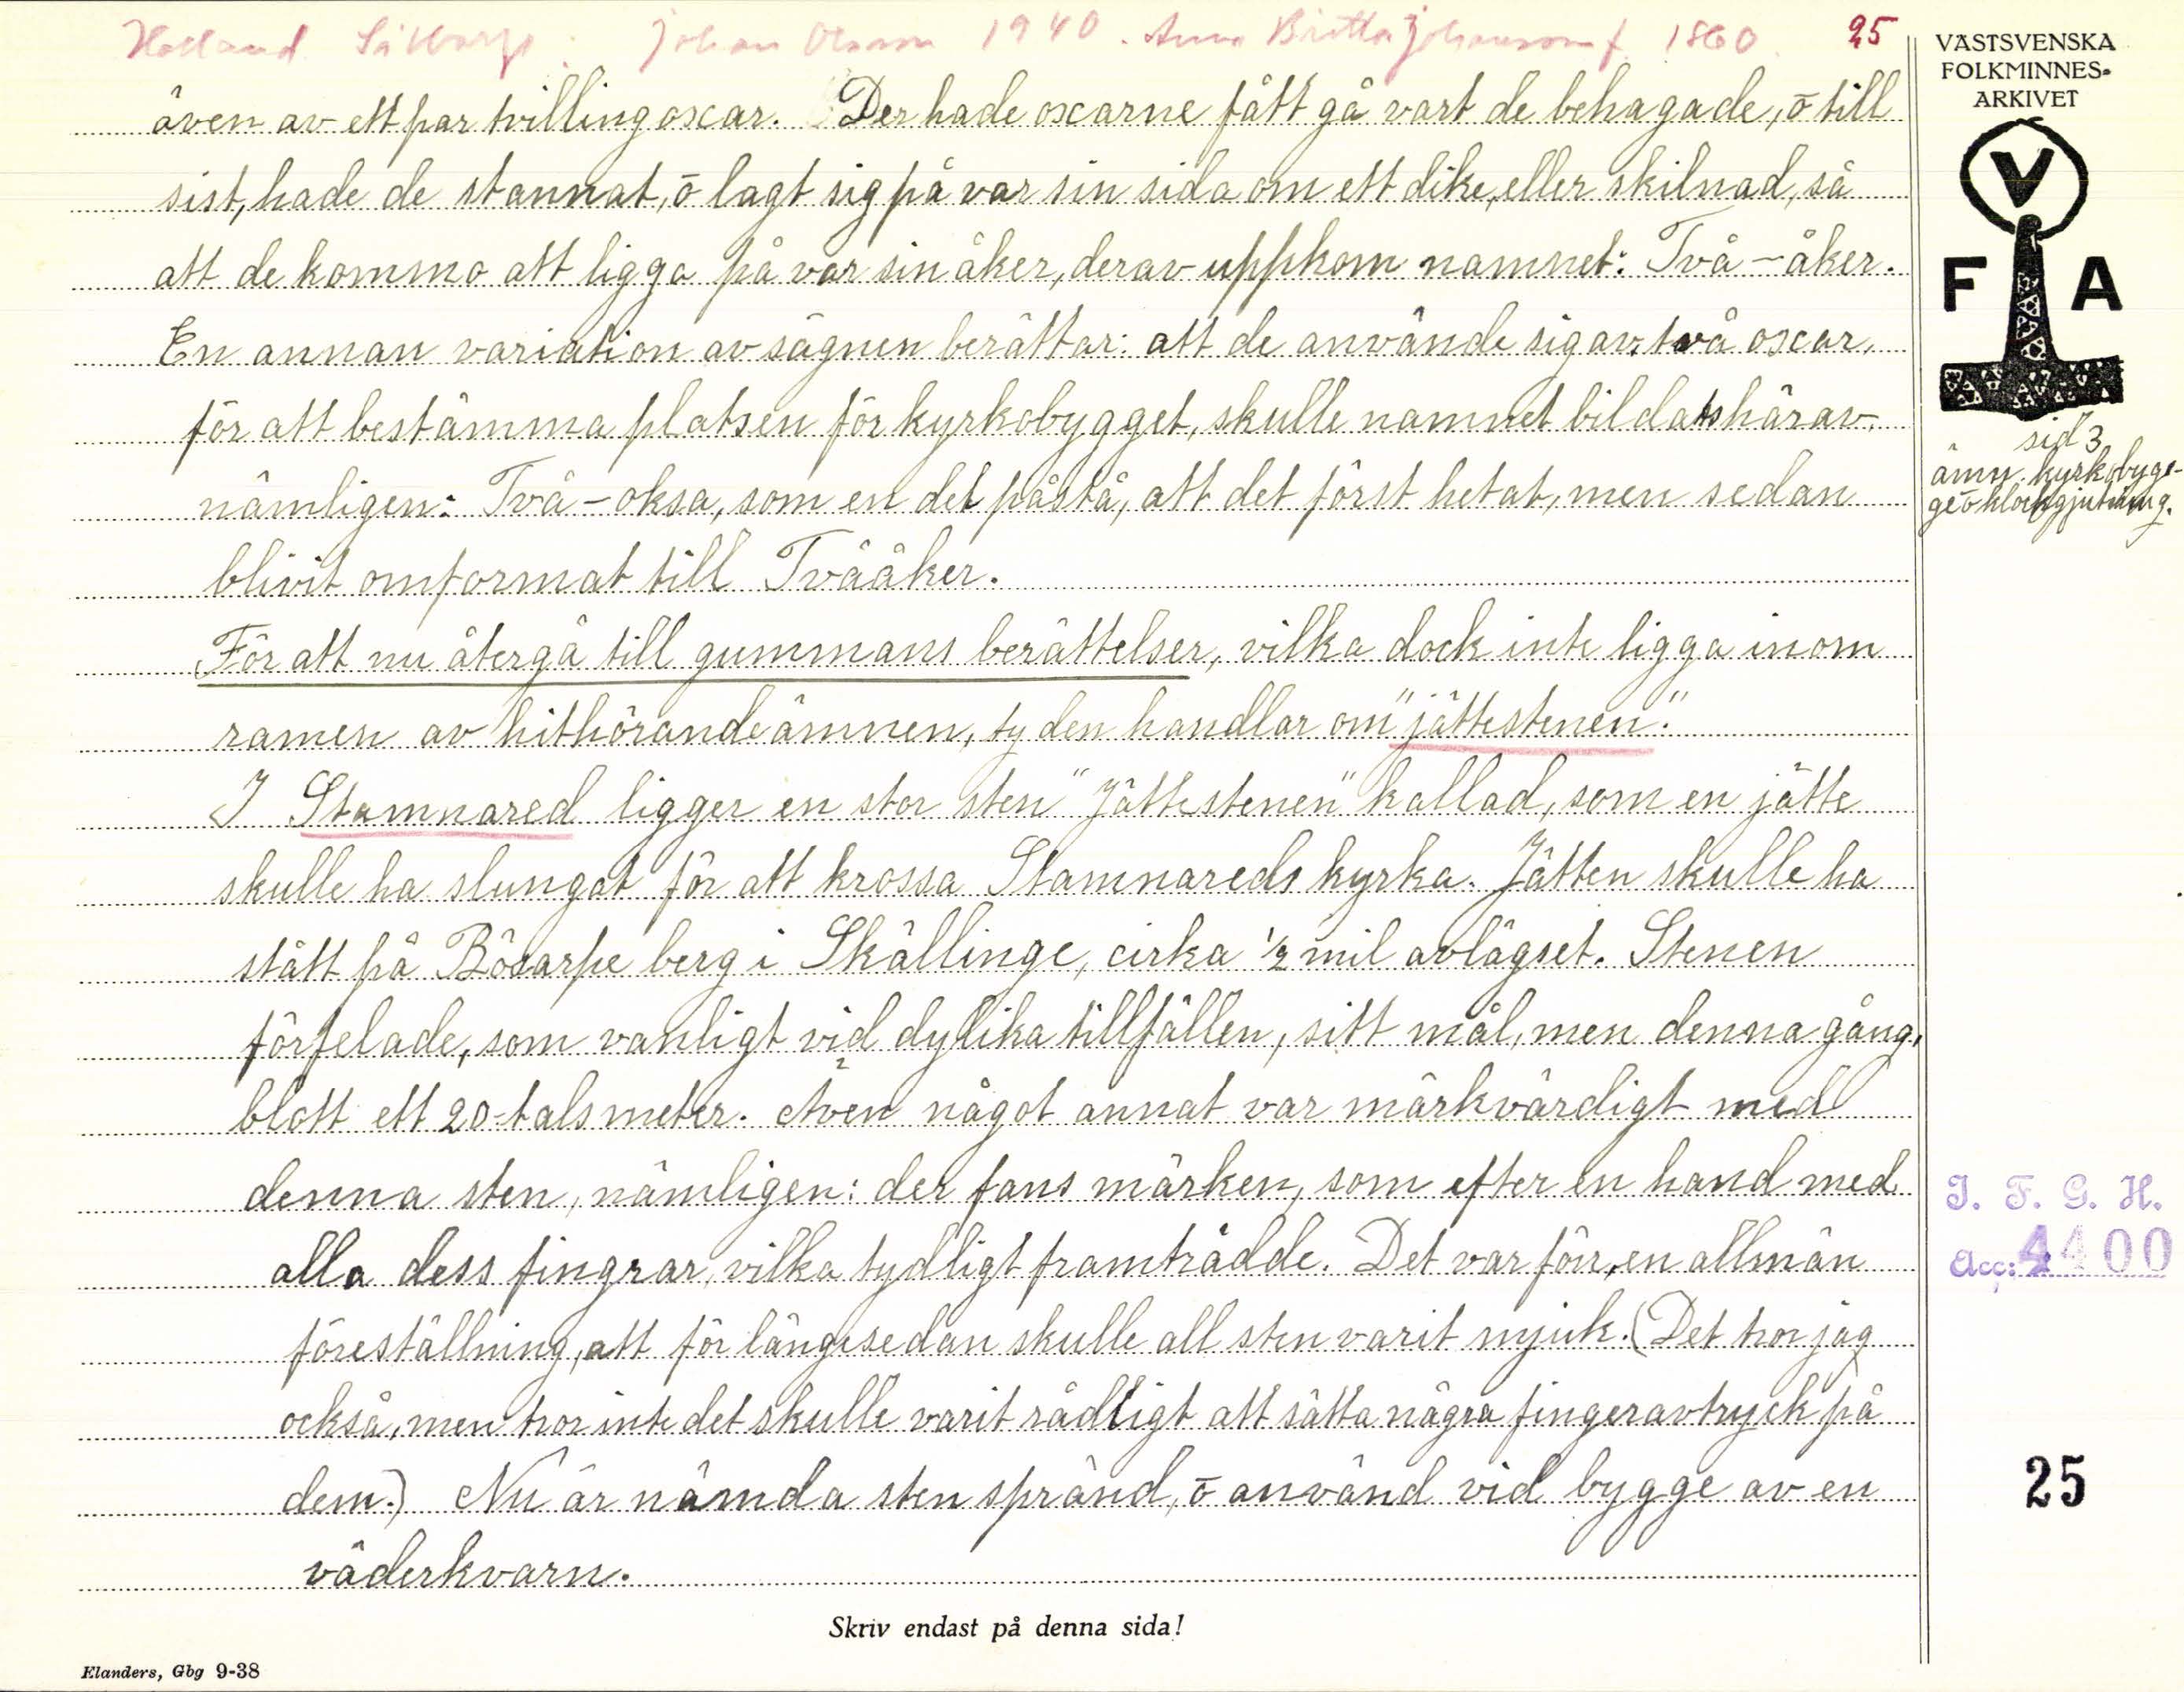 Halland Sibbarp. Johan Olsson 1940. Anna Britta Johansson f. 1860. 25
även av ett par tvillingoxar. Der hade oxarne fått gå vart de behagade, ō till
sist, hade de stannat, ō lagt sig på var sin sida om ett dike, eller skilnad, så
att de kommo att ligga på var sin åker, derav uppkom namnet: Två-åker.
En annan variation av sägnen berättar: att de använde sig av två oxar,
för att bestämma platsen för kyrkobygget, skulle namnet bildats härav,
nämligen: Två-oksa, som en del påstå, att det först hetat, men sedan
blivit omformat till Tvååker.
För att nu återgå till gummans berättelser, vilka dock inte ligga inom
ramen av hithörande ämnen, ty den handlar om "jättestenen".
I Stamnared ligger en stor sten "Jättestenen" kallad, som en jätte
skulle ha slungat för att krossa Stamnareds kyrka. Jätten skulle ha
stått på Bösarpe berg i Skällinge, cirka 1/2 mil avlägset. Stenen
förfelade, som vanligt vid dylika tillfällen, sitt mål, men denna gång,
blott ett 20-tals meter. Även något annat var märkvärdigt med
denna sten, nämligen: der fans märken, som efter en hand med
alla dess fingrar, vilka tydligt framträdde. Det var förr, en allmän
föreställning, att för längesedan skulle all sten varit mjuk. (Det tror jag
också, men tror inte det skulle varit rådligt att sätta några fingeravtryck på
dem.) Nu är nämda sten spränd, ō använd vid bygge av en
väderkvarn.
Skriv endast på denna sida!
Elanders, Gbg 9-38
VÄSTSVENSKA
FOLKMINNES-
ARKIVET
V
F A
sid 3
ämn. kyrkobygge-
ge ō klockgjutning.
I. F. G. H.
Acc: 4400
25